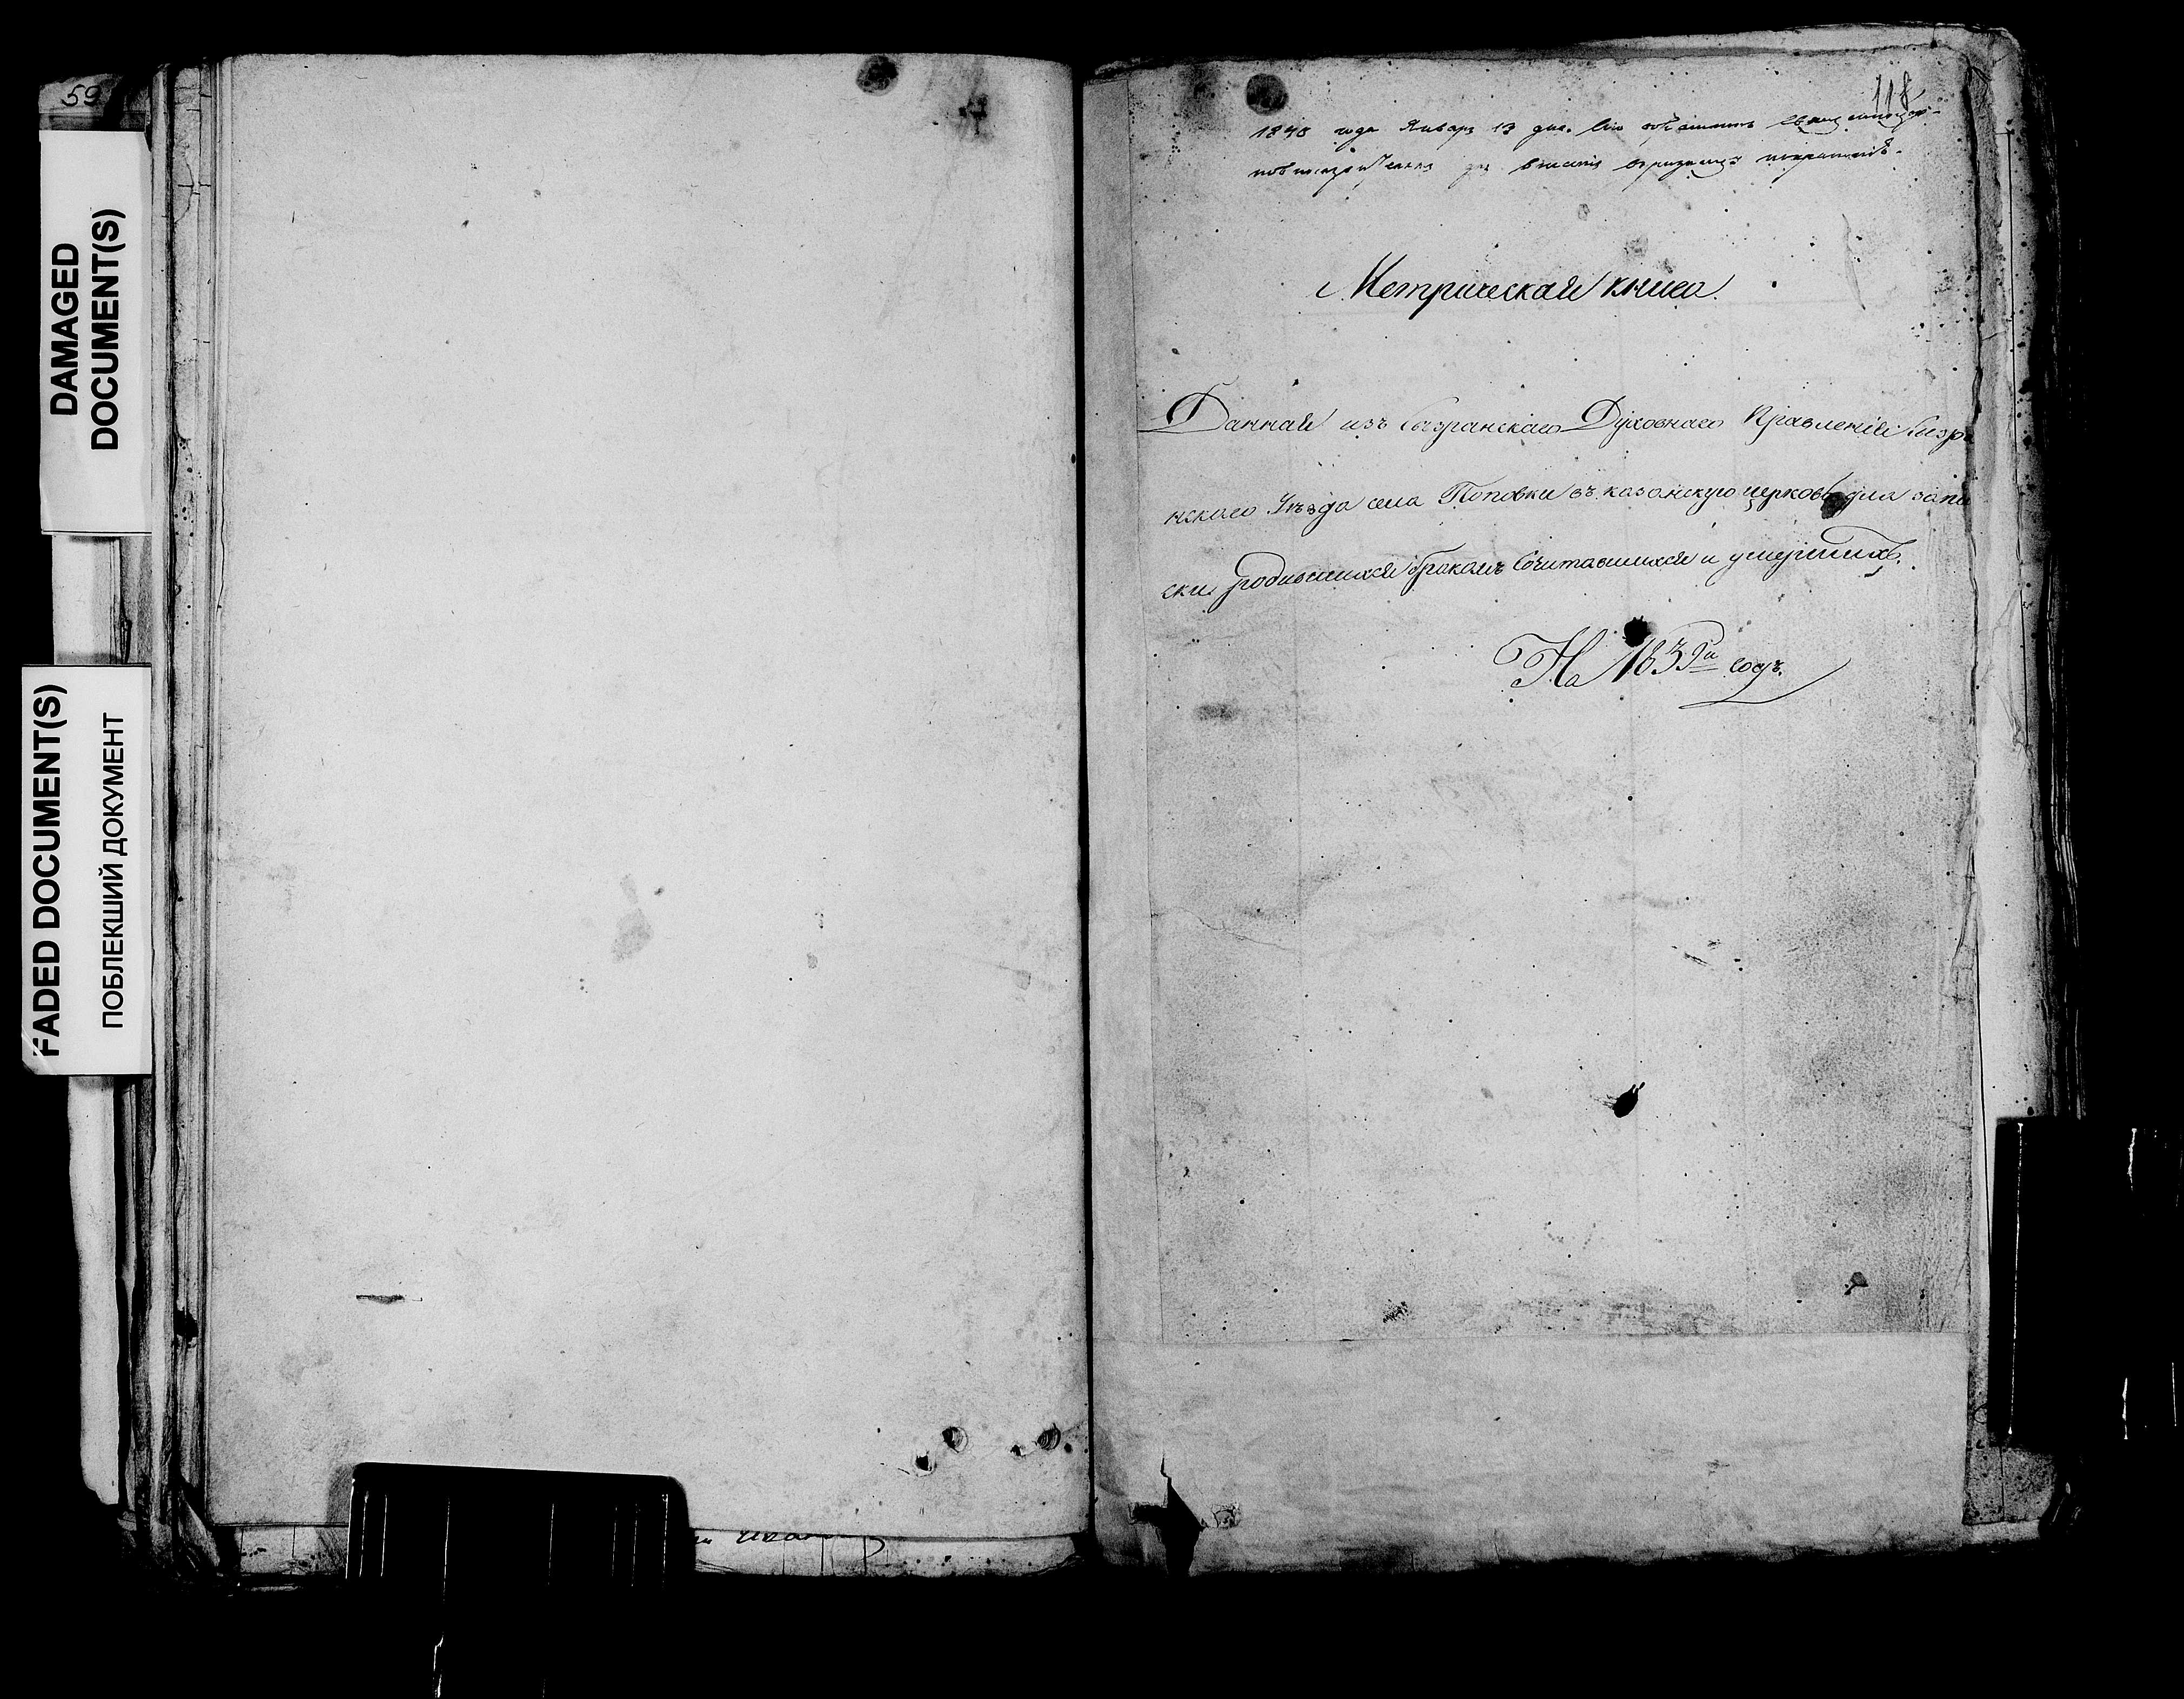 59
DAMAGED
DOCUMENT(S)
FADED DOCUMENT(S)
ПОБЛЕКШИЙ ДОКУМЕНТ
118
1840 года Января 13 дня. Сію
для
Метрическая книга.
Данная изъ Сызранскаго Духовнаго Правленія Сызра
нскаго Уѣзда села Поповки въ казанскую церковь для запи
ски родившихся бракомъ Сочитавшихся и умершихъ.
На 1839й годъ.